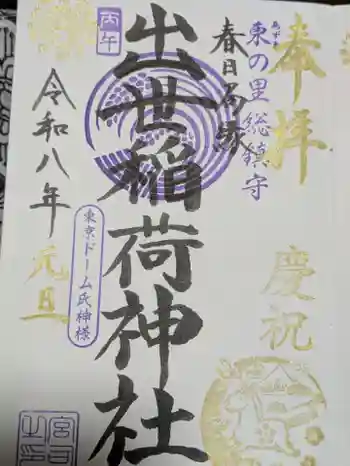 奉拝
慶祝
東の里総鎮守
あずま
春日局縁
出世稲荷神社
丙午
東京ドーム氏神様
令和八年
元旦
宮司之印